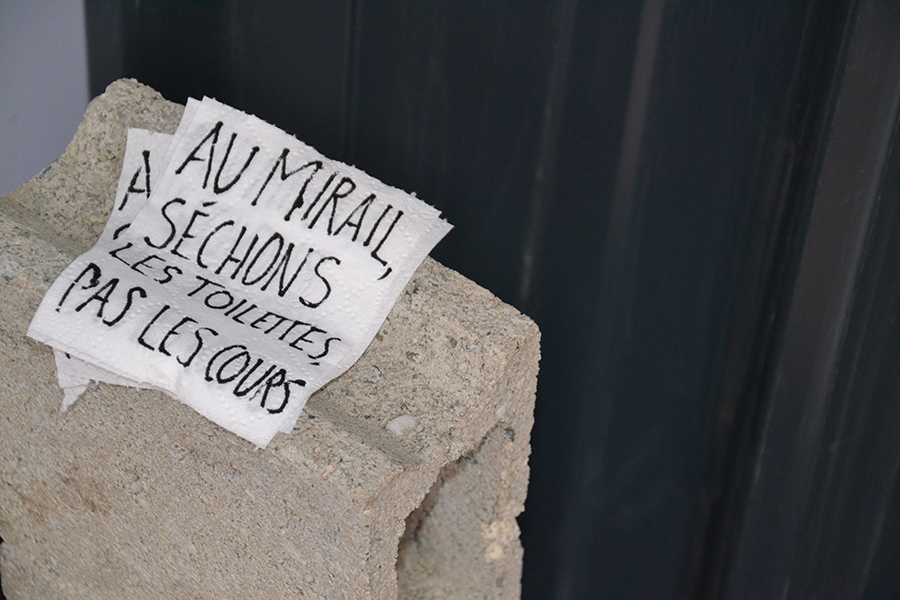 AU MIRAIL,
SÉCHONS
LES TOILETTES,
PAS LES COURS
A